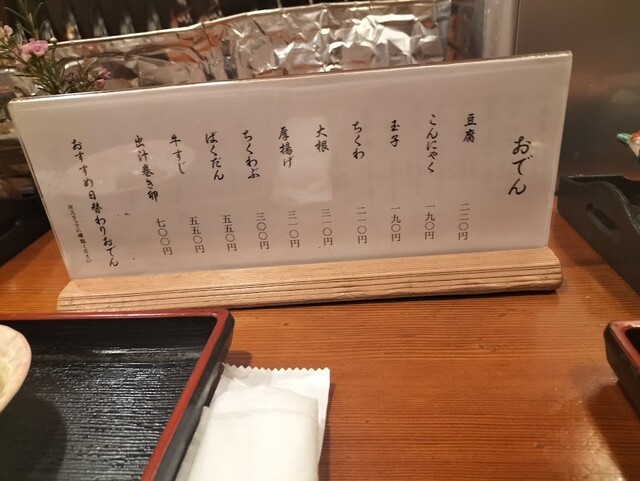 おでん
豆腐 二二〇円
こんにゃく 一九〇円
玉子 一九〇円
ちくわ 二一〇円
大根 三一〇円
厚揚げ 三一〇円
ちくわぶ 三〇〇円
ばくだん 五五〇円
牛すじ 五五〇円
出汁巻き卵 七〇〇円
おすすめ日替わりおでん